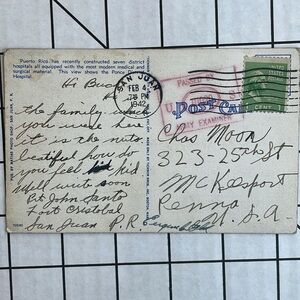 Puerto Rico has recently constructed seven district
hospitals all equipped with the most modern medical and
surgical material. This view shows the Ponce District
Hospital.
SAN JUAN
FEB 4
PM
1942
PASSED BY
EXAMINER
POST CARD
CENT
Hi Buck
the family
you were here
it is the nuts
beautiful how do
you feel kid
well write soon
Pvt John Santo
Fort Cristobal
San Juan P.R.
Chas Moon
323-25th St
McKeesport
Penna
U.S.A